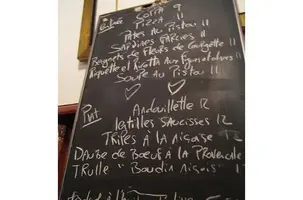 Entrée
Copa 9
Pizza 11
Pâtes Au Pistou 11
Sardines Farcies 11
Beignets de Fleurs de Courgette 11
Roquette et Ricotta Aux
Soupe Au Pistou 11
Plat
Andouillette 12
lentilles Saucisses 12
Tripes à la Niçoise 12
Daube de Boeuf à la Provençale
TRULLE "Boudin Niçois" 11